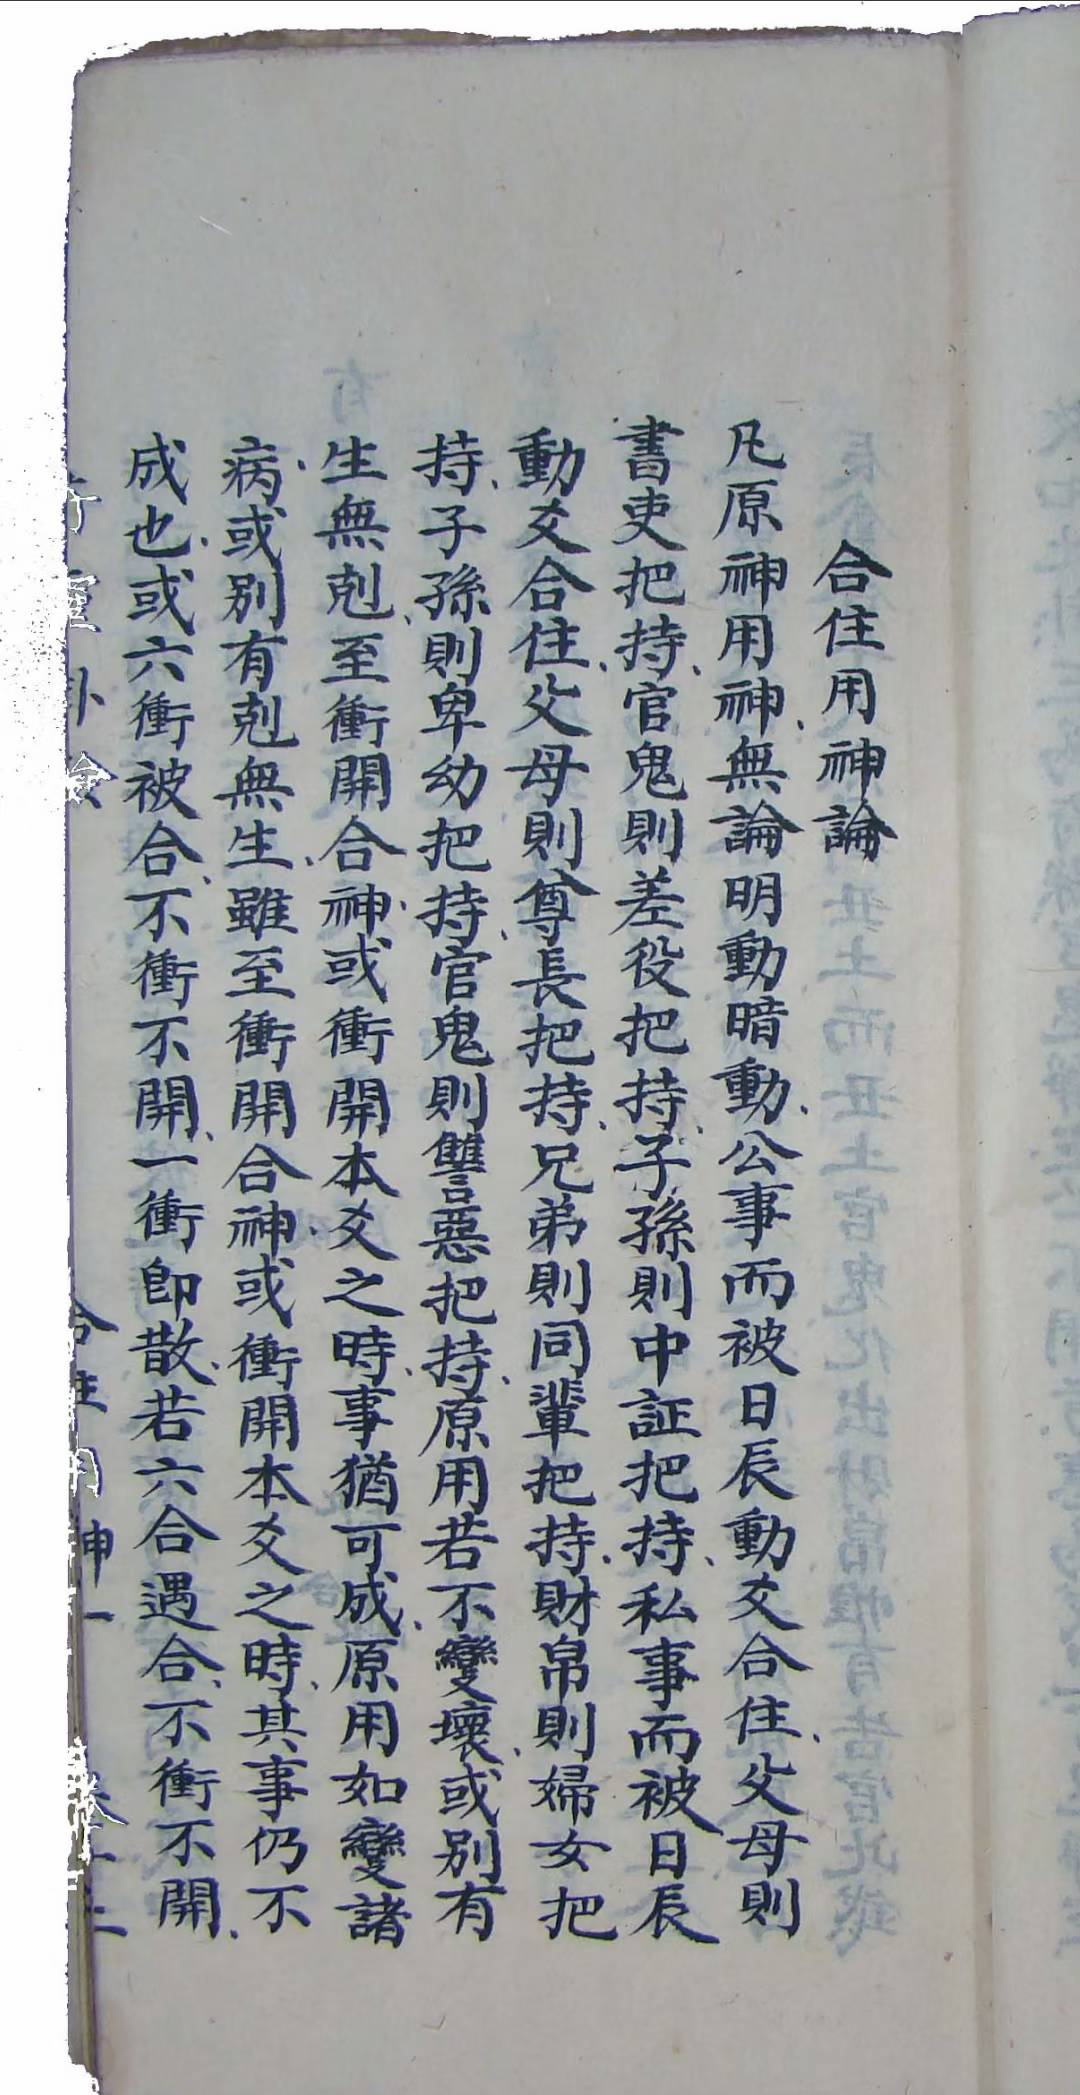 合住用神論
凡原神用神、無論明動暗動、公事而被日辰動爻合住、父母則
書吏把持、官鬼則差役把持、子孫則中証把持、私事而被日辰
動爻合住、父母則尊長把持、兄弟則同輩把持、財帛則婦女把
持、子孫則卑幼把持、官鬼則讐惡把持、原用若不變壞、或別有
生無剋、至衝開合神、或衝開本爻之時、事猶可成、原用如變諸
病、或別有剋無生、雖至衝開合神、或衝開本爻之時、其事仍不
成也、或六衝被合、不衝不開、一衝即散、若六合遇合、不衝不開、
合住用神一